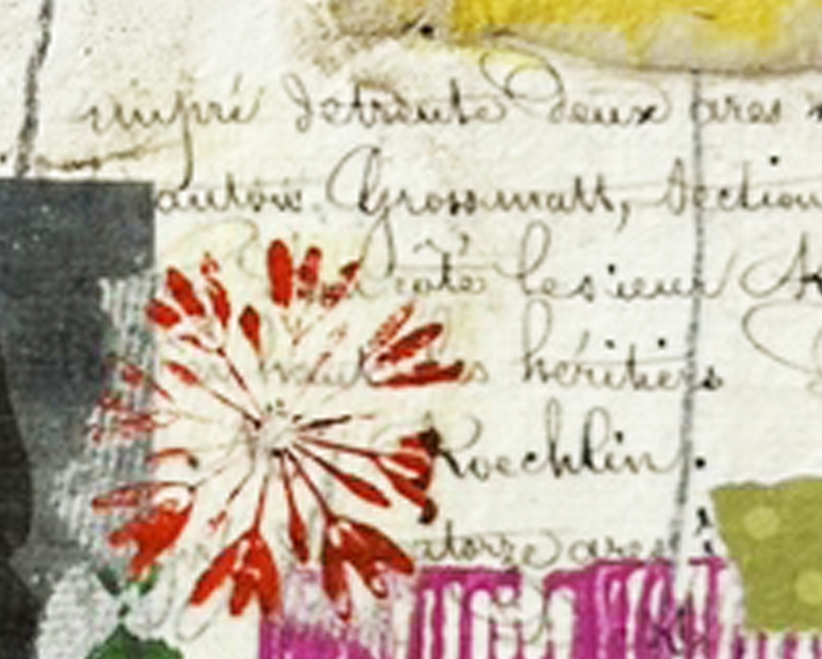 detrente deux ares
canton Grossmatt, Section
côté lesieur
haut des héritiers
Koechlin.
quatorze ares